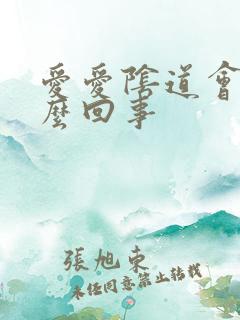 愛愛陰道會
麼回事
張旭東
未經同意禁止轉載